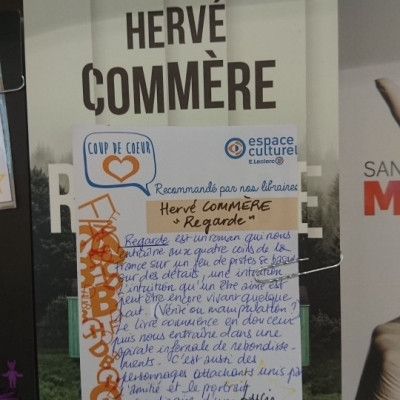 HERVÉ
COMMÈRE
R
E
COUP DE COEUR
espace
culturel
E.Leclerc
Recommandé par nos libraires
Hervé COMMÈRE
"Regarde"
Regarde est un roman qui nous
entraîne aux quatre coins de la
France sur un jeu de pistes se basant
sur des détails, une intuition
l'intuition qu'un être aimé est
peut être encore vivant quelque
part. (Vérité ou manipulation ?
Le livre commence en douceur
puis nous entraîne dans une
spirale infernale de rebondisse-
ments. C'est aussi des
personnages attachants unis par
l'amitié et le portrait
SAN
M